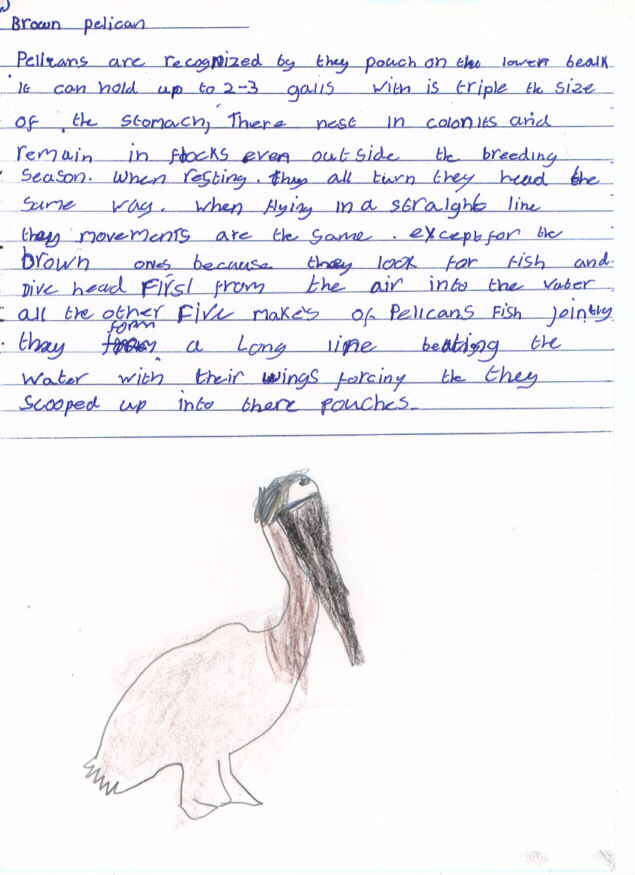 Brown pelican
Pelicans are recognized by they pouch on the lower beak
It can hold up to 2-3 galls with is triple the size
of the stomach, There nest in colonies and
remain in flocks even outside the breeding
season. When resting. they all turn they head the
same way. when flying in a straight line
they movements are the same. except for the
brown ones because they look for fish and
Dive head First from the air into the water
all the other Five makes of Pelicans Fish jointly
they form a Long line beating the
water with their wings forcing the they
Scooped up into there Pouches.